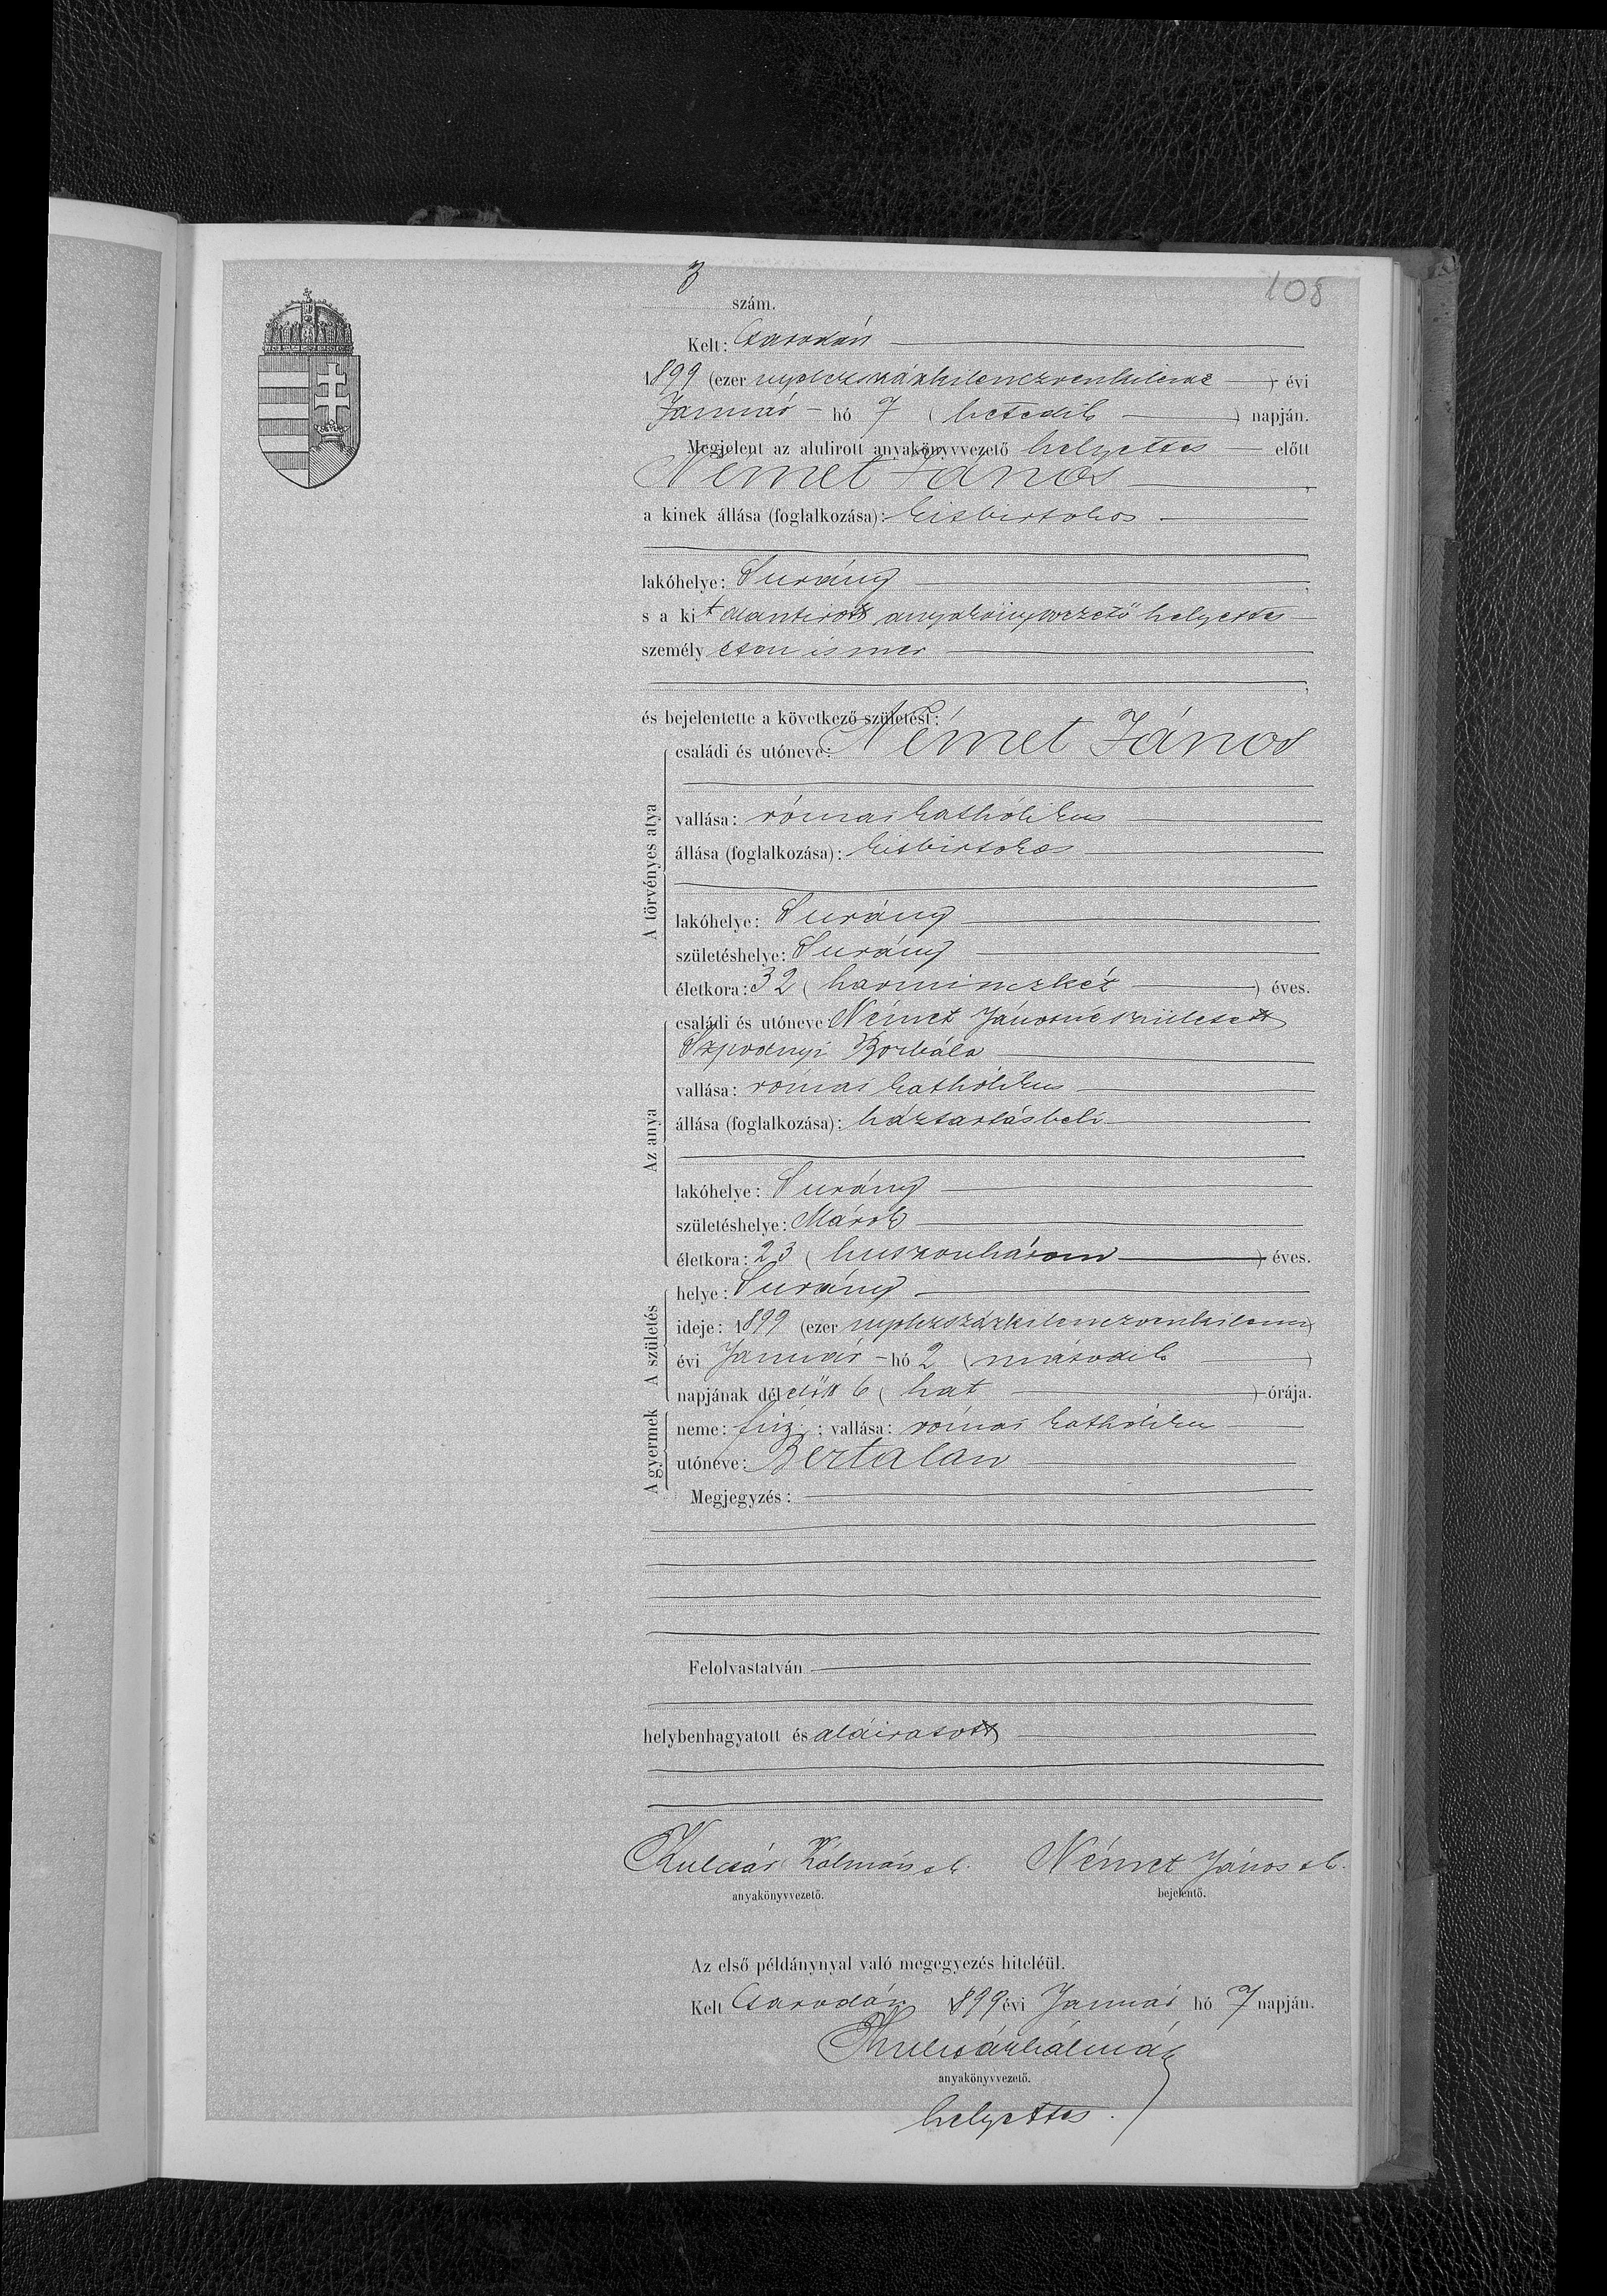 108
3 szám.
Kelt: Csarodán
1899 (ezer nyolczszázkilenczvenkilencz ) évi
Január hó 7 ( hetedik ) napján.
Megjelent az alulirott anyakönyvvezető helyettes előtt
Német János ,
a kinek állása (foglalkozása): kisbirtokos
lakóhelye: Surány ,
s a kit alantirott anyakönyvvezető helyettes
személyesen ismer
,
és bejelentette a következő születést:
A törvényes atya
családi és utóneve: Német János
vallása: római katholikus
állása (foglalkozása): kisbirtokos
lakóhelye: Surány
születéshelye: Surány
életkora: 32 ( harminczkét ) éves.
Az anya
családi és utóneve: Német Jánosné született
Szpodnyi Borbála
vallása: római katholikus
állása (foglalkozása): háztartásbeli
lakóhelye: Surány
születéshelye: Márok
életkora: 23 ( huszonhárom ) éves.
A születés
helye: Surány
ideje: 1899 (ezer nyolczszázkilenczvenkilencz)
évi Január hó 2 ( második )
napjának délelőtt 6 ( hat ) órája.
A gyermek
neme: fiú ; vallása: római katholikus
utóneve: Bertalan
Megjegyzés:
Felolvastatván
helybenhagyatott és aláiratott
Kulcsár Kálmán sk. Német János sk.
anyakönyvvezető. bejelentő.
Az első példánynyal való megegyezés hiteléül.
Kelt Csarodán 1899 évi Január hó 7 napján.
Kulcsár Kálmán
anyakönyvvezető.
helyettes.